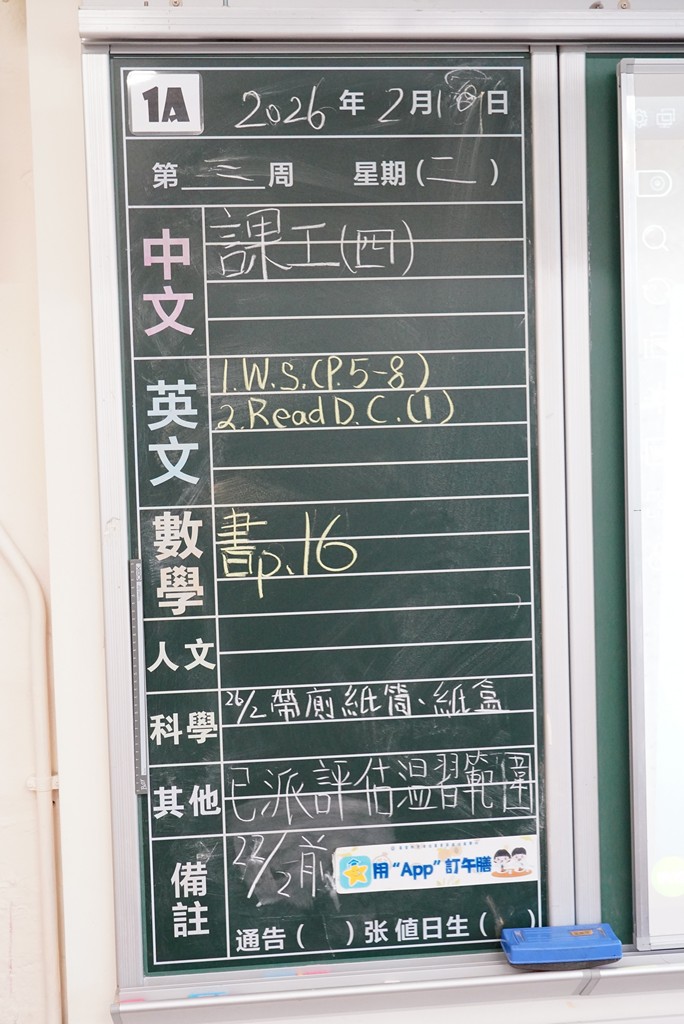 1A 2026 年 2 月 1 日
第 三 周 星期 (二)
中文 課工(四)
英文 1. W.S. (P.5-8)
2. Read D.C. (1)
數學 書p.16
人文
科學 26/2 帶廁紙筒、紙盒
其他 已派評估溫習範圍
備註 22/2前 用“App”訂午膳
通告 ( ) 张 值日生 ( )